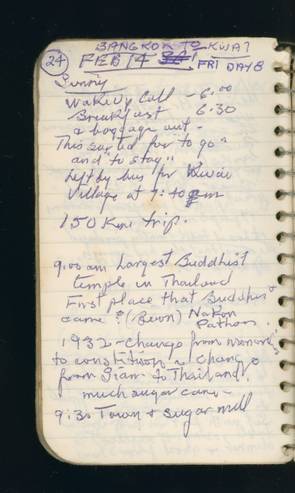 BANGKOK TO KWAI
24 FEB 14 FRI DAY 8
Sunny
Wake Up Call - 6.00
Breakfast 6:30
& baggage out -
This sorted for "to go"
and "to stay"
Left by bus for Kwai
Village at 7:40 am
150 Km trip.
9:00 am Largest Buddhist
temple in Thailand
First place that Buddhist
came? Nakon
Pathom
1932 - change from monarchy
to constitution & change
from Siam to Thailand,
much sugar cane -
9:30 Town & sugar mill